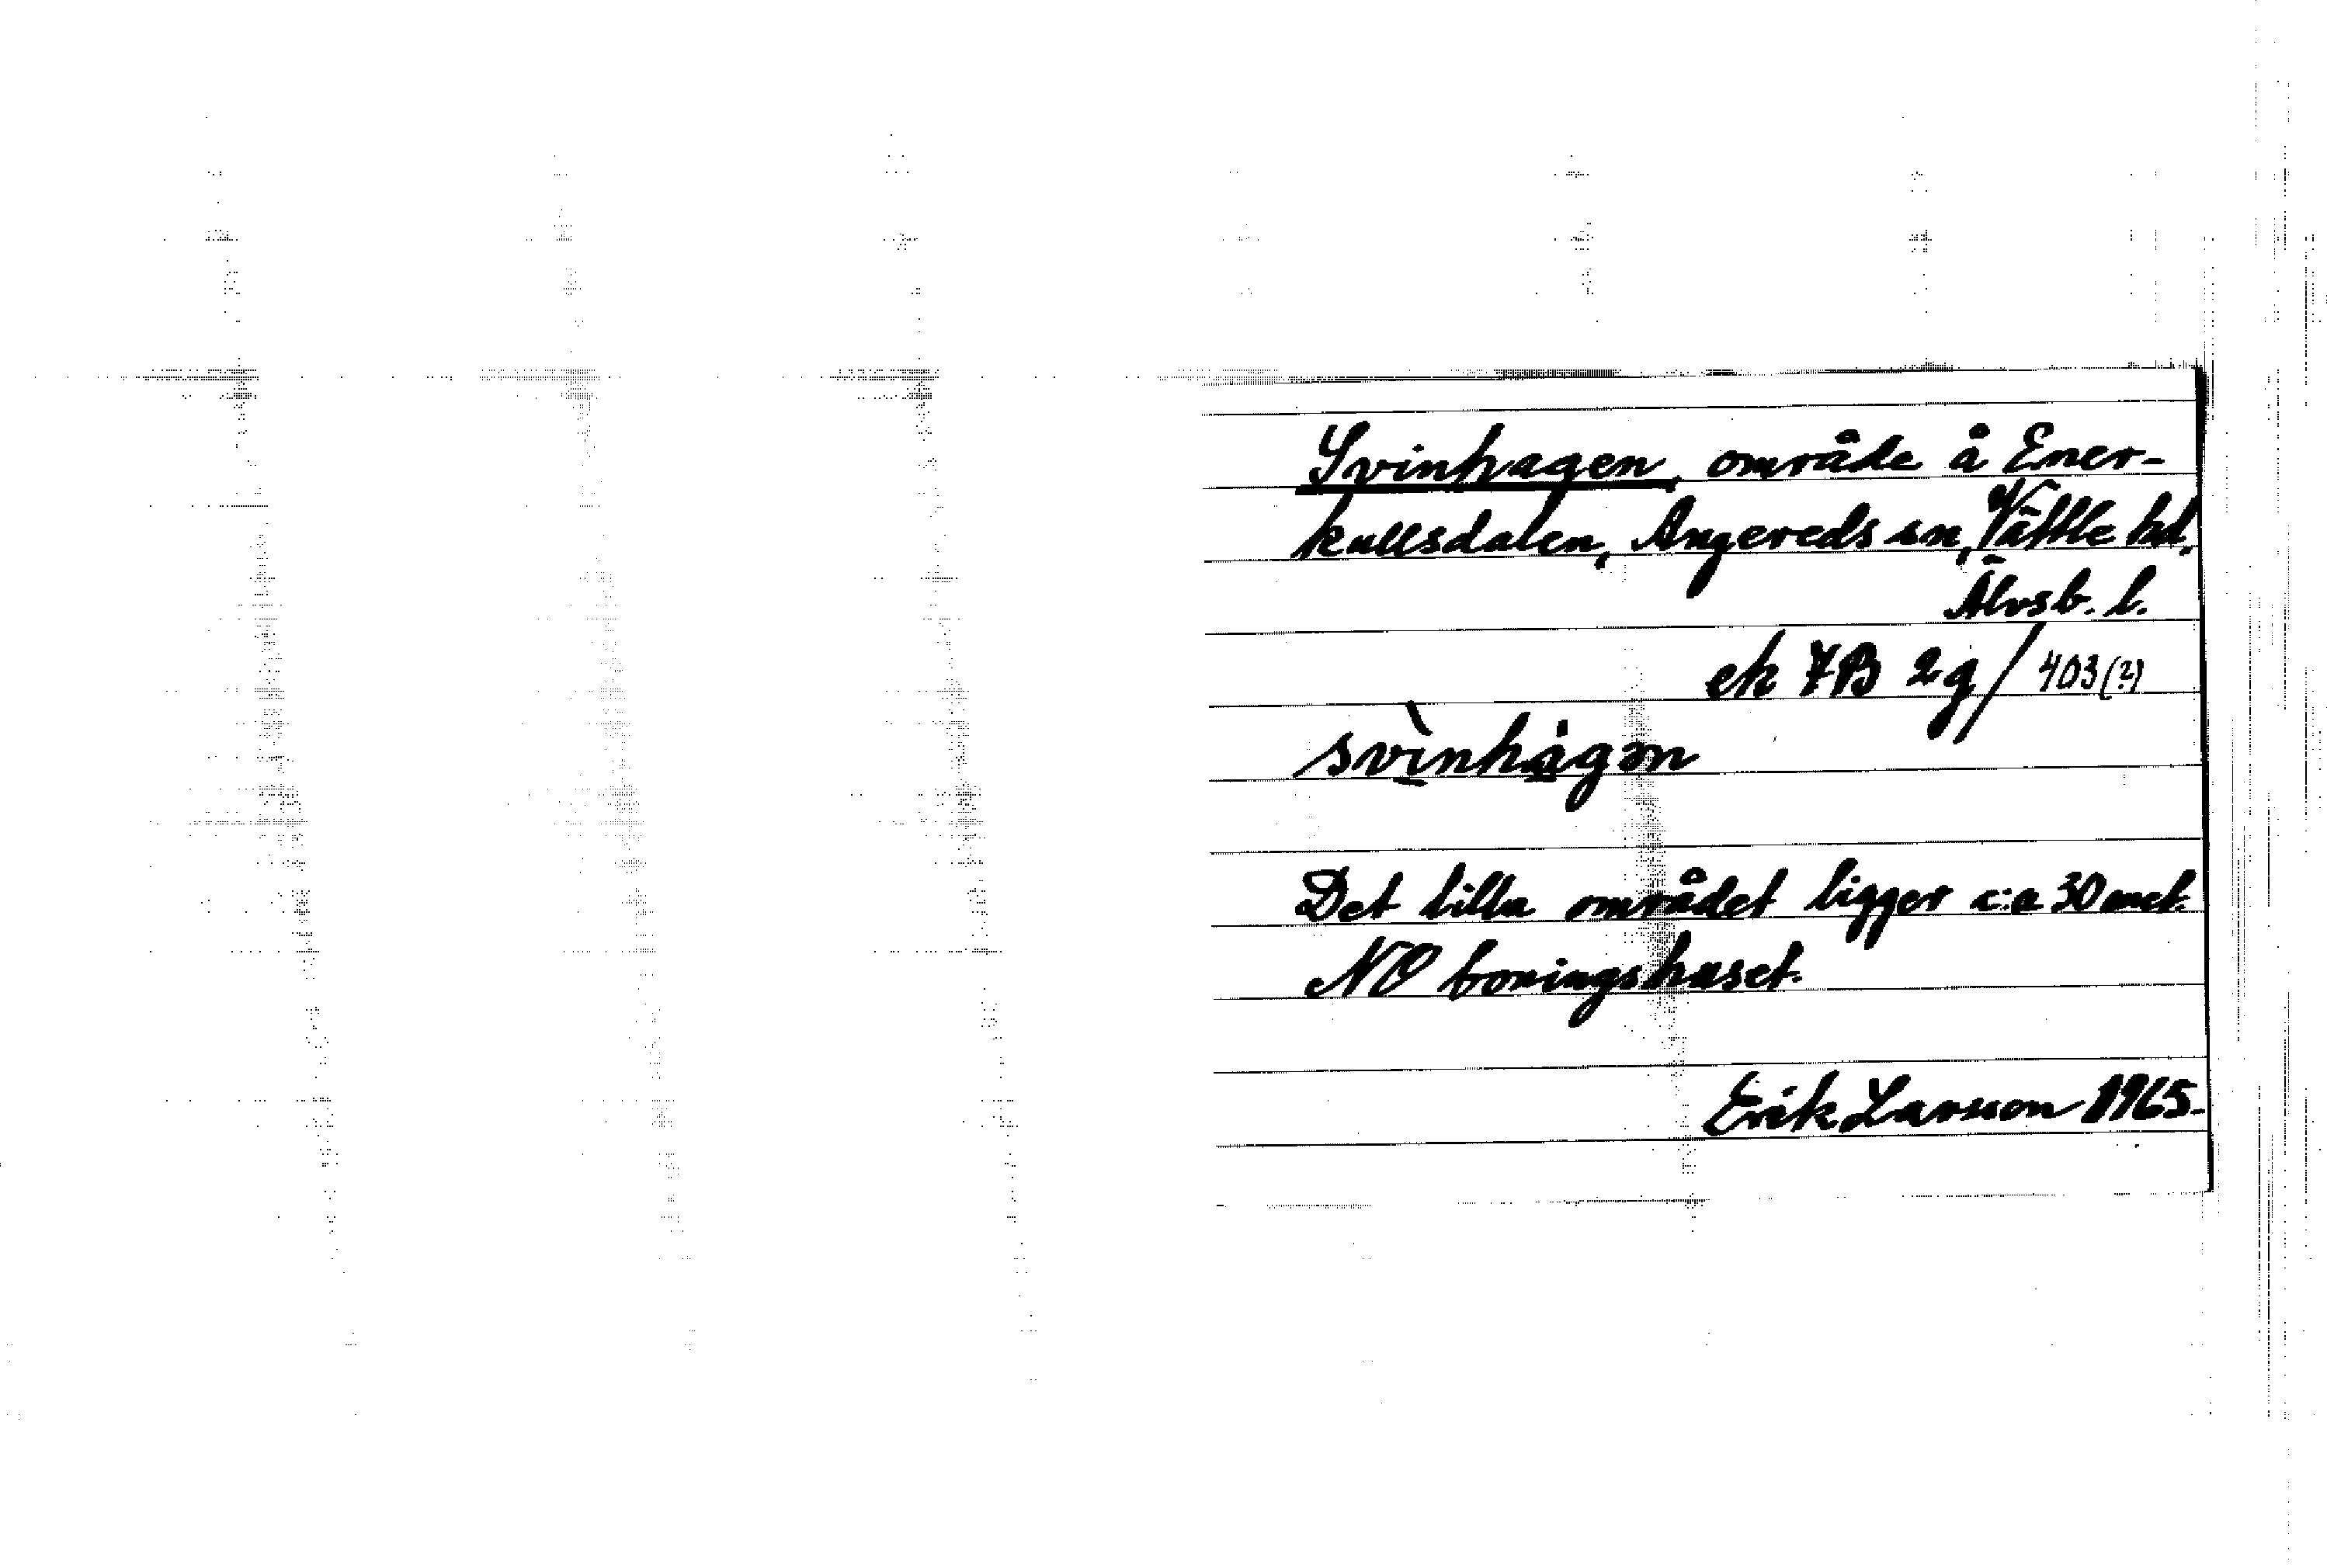 Svinhagen, område å Ener-
kullsdalen, Angereds sn, Vättle hd,
Älvsb. l.
ek 7B 2g/403(?)
svìnhàgən
Det lilla området ligger c:a 30 met.
NO boningshuset.
Erik Larsson 1965.